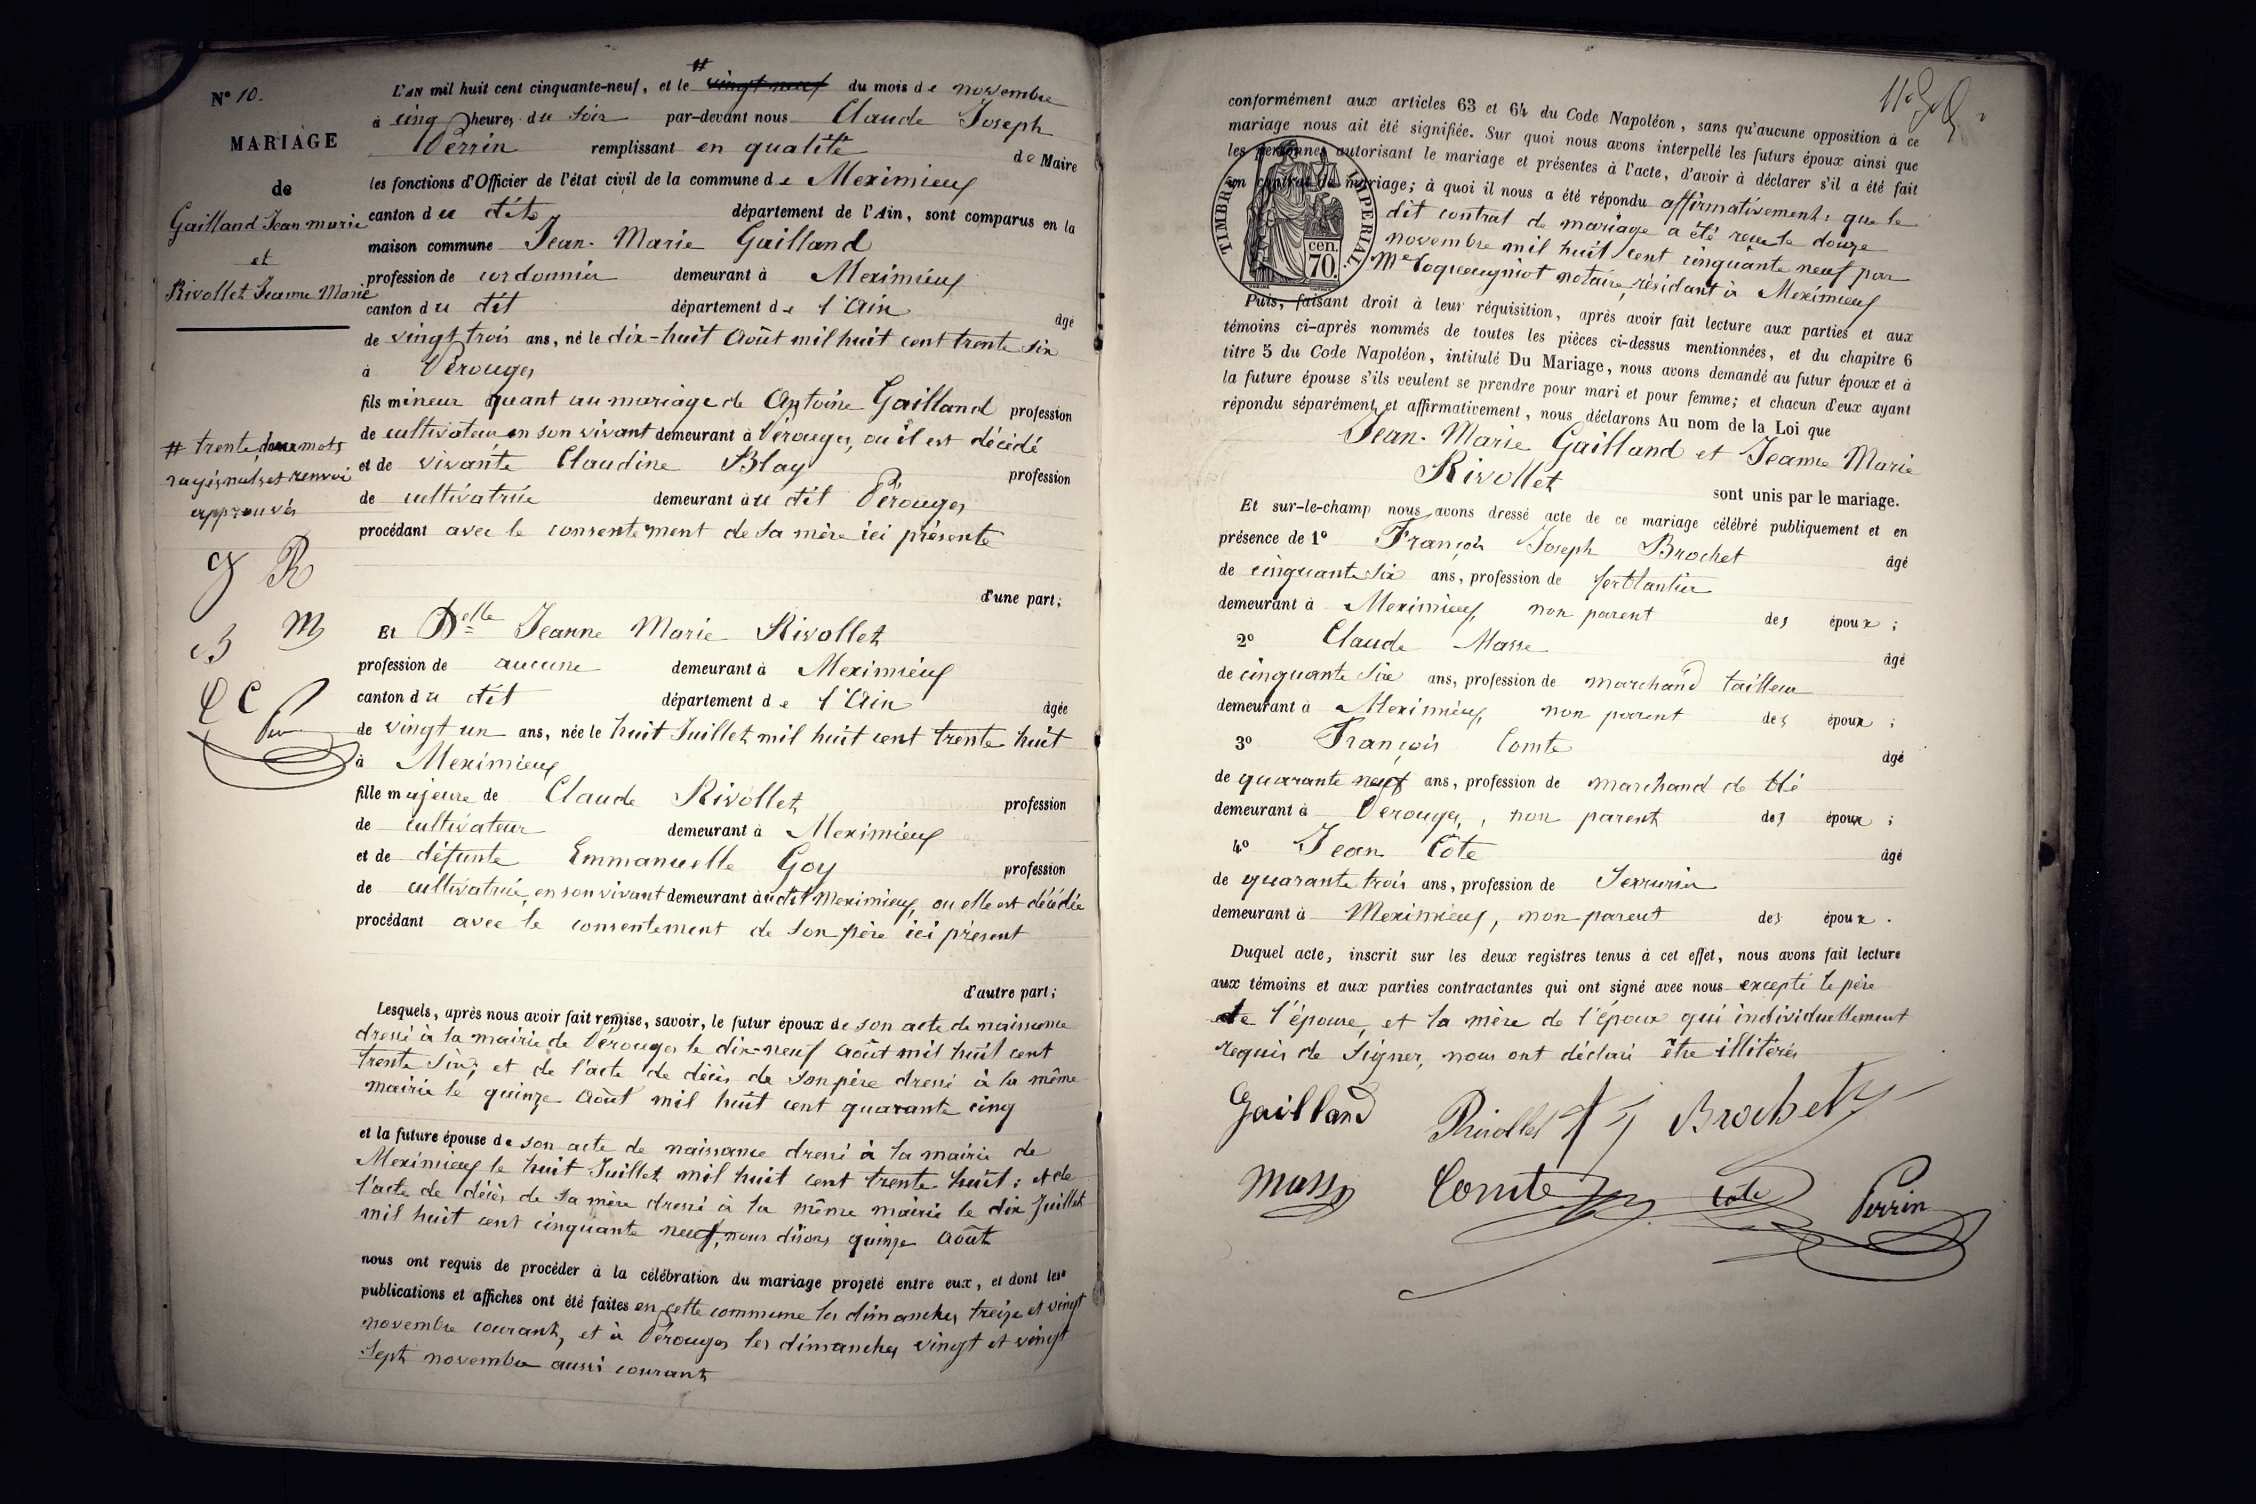 N° 10.
MARIAGE
de
Gailland Jean marie
et
Rivollet Jeanne Marie
# trente, deux mots
rayés nuls et renvoi
approuvés
G R
B M
C C
Per
L'AN mil huit cent cinquante-neuf, et le # vingt-neuf du mois de novembre
à cinq heures du soir par-devant nous Claude Joseph
Perrin remplissant en qualité de Maire
les fonctions d'Officier de l'état civil de la commune de Meximieux
canton du dit département de l'Ain, sont comparus en la
maison commune Jean-Marie Gailland
profession de cordonnier demeurant à Meximieux
canton du dit département de l'Ain âgé
de vingt trois ans, né le dix-huit Août mil huit cent trente six
à Pérouges
fils mineur quant au mariage de Antoine Gailland profession
de cultivateur en son vivant demeurant à Pérouges, où il est décédé
et de vivante Claudine Blay profession
de cultivatrice demeurant au dit Pérouges
procédant avec le consentement de sa mère ici présente
d'une part;
Et Delle Jeanne Marie Rivollet
profession de aucune demeurant à Meximieux
canton du dit département de l'Ain âgée
de vingt un ans, née le huit Juillet mil huit cent trente huit
à Meximieux
fille majeure de Claude Rivollet profession
de cultivateur demeurant à Meximieux
et de défunte Emmanuelle Goy profession
de cultivatrice, en son vivant demeurant audit Meximieux, ou elle est décédée
procédant avec le consentement de son père ici présent
d'autre part;
Lesquels, après nous avoir fait remise, savoir, le futur époux de son acte de naissance
dressé à la mairie de Pérouges le dix-neuf Août mil huit cent
trente six; et de l'acte de décès de son père dressé à la même
mairie le quinze Août mil huit cent quarante cinq
et la future épouse de son acte de naissance dressé à la mairie de
Meximieux le huit Juillet mil huit cent trente huit; et de
l'acte de décès de sa mère dressé à la même mairie le dix Juillet
mil huit cent cinquante neuf, nous disons quinze Août
nous ont requis de procéder à la célébration du mariage projeté entre eux, et dont les
publications et affiches ont été faites en cette commune les dimanches treize et vingt
novembre courant, et à Pérouges les dimanches vingt et vingt
sept novembre aussi courant
conformément aux articles 63 et 64 du Code Napoléon, sans qu'aucune opposition à ce
mariage nous ait été signifiée. Sur quoi nous avons interpellé les futurs époux ainsi que
les personnes autorisant le mariage et présentes à l'acte, d'avoir à déclarer s'il a été fait
un contrat de mariage; à quoi il nous a été répondu affirmativement: que le
dit contrat de mariage a été reçu le douze
novembre mil huit cent cinquante neuf par
Me Coqueugniot notaire, résidant à Meximieux
TIMBRE IMPERIAL.
cen.
70.
Puis, faisant droit à leur réquisition, après avoir fait lecture aux parties et aux
témoins ci-après nommés de toutes les pièces ci-dessus mentionnées, et du chapitre 6
titre 5 du Code Napoléon, intitulé Du Mariage, nous avons demandé au futur époux et à
la future épouse s'ils veulent se prendre pour mari et pour femme; et chacun d'eux ayant
répondu séparément et affirmativement, nous déclarons Au nom de la Loi que
Jean-Marie Gailland et Jeanne Marie
Rivollet sont unis par le mariage.
Et sur-le-champ nous avons dressé acte de ce mariage célébré publiquement et en
présence de 1° François Joseph Brochet âgé
de cinquante six ans, profession de ferblantier
demeurant à Meximieux, non parent des époux;
2° Claude Masse âgé
de cinquante six ans, profession de marchand tailleur
demeurant à Meximieux, non parent des époux;
3° François Comte âgé
de quarante neuf ans, profession de marchand de blé
demeurant à Pérouges, non parent des époux;
4° Jean Côte âgé
de quarante trois ans, profession de Serrurier
demeurant à Meximieux, non parent des époux.
Duquel acte, inscrit sur les deux registres tenus à cet effet, nous avons fait lecture
aux témoins et aux parties contractantes qui ont signé avec nous excepté le père
de l'épouse, et la mère de l'époux qui individuellement
requis de signer, nous ont déclaré être illitérés
Gailland Rivollet f j Brochet
Masse Comte Cote Perrin